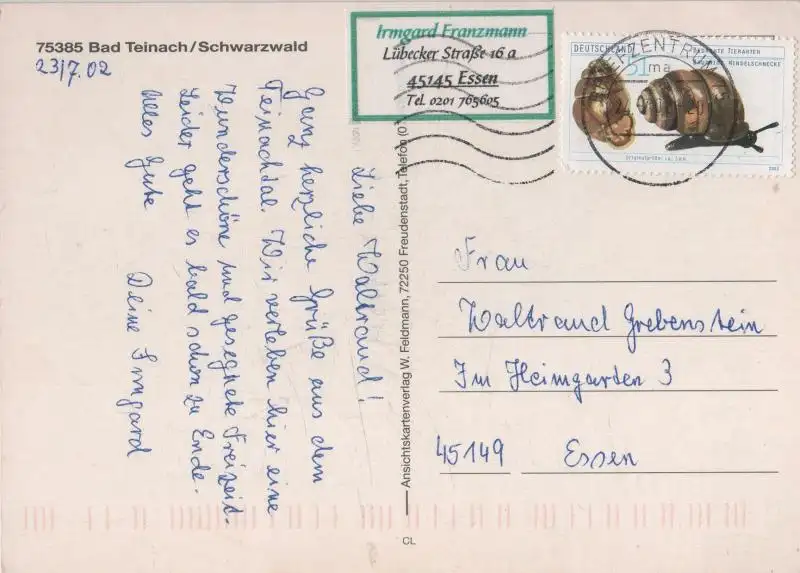 75385 Bad Teinach/Schwarzwald
23/7.02
Liebe Waltraud!
Ganz herzliche Grüße aus dem
Teinachtal. Wir verleben hier eine
wunderschöne und gesegnete Freizeit.
Leider geht es bald schon zu Ende.
Alles Gute
Deine Irmgard
Irmgard Franzmann
Lübecker Straße 16 a
45145 Essen
Tel. 0201 765605
DEUTSCHLAND
TIERARTEN
WINDELSCHNECKE
51
Originalgröße: ca.
2002
Ansichtskartenverlag W. Feldmann, 72250 Freudenstadt, Telefon (0
Frau
Waltraud Grebenstein
Im Heimgarten 3
45149 Essen
CL